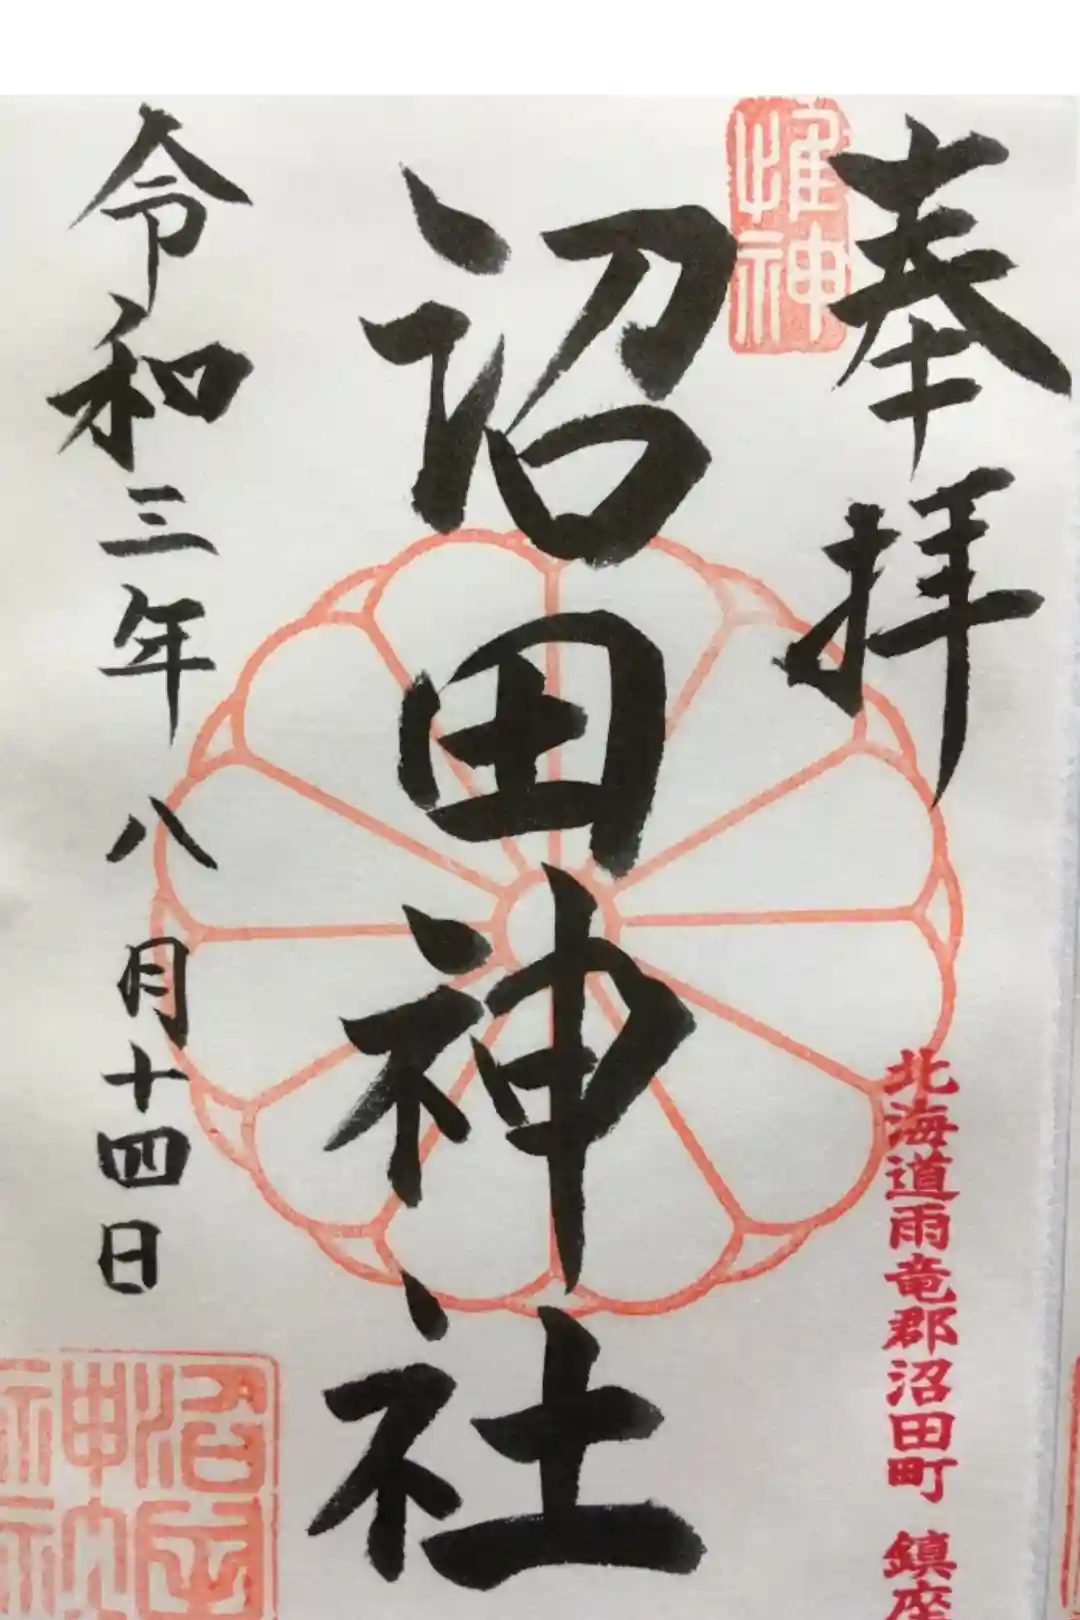 奉拝
惟神
北海道雨竜郡沼田町 鎮座
沼田神社
令和三年八月十四日